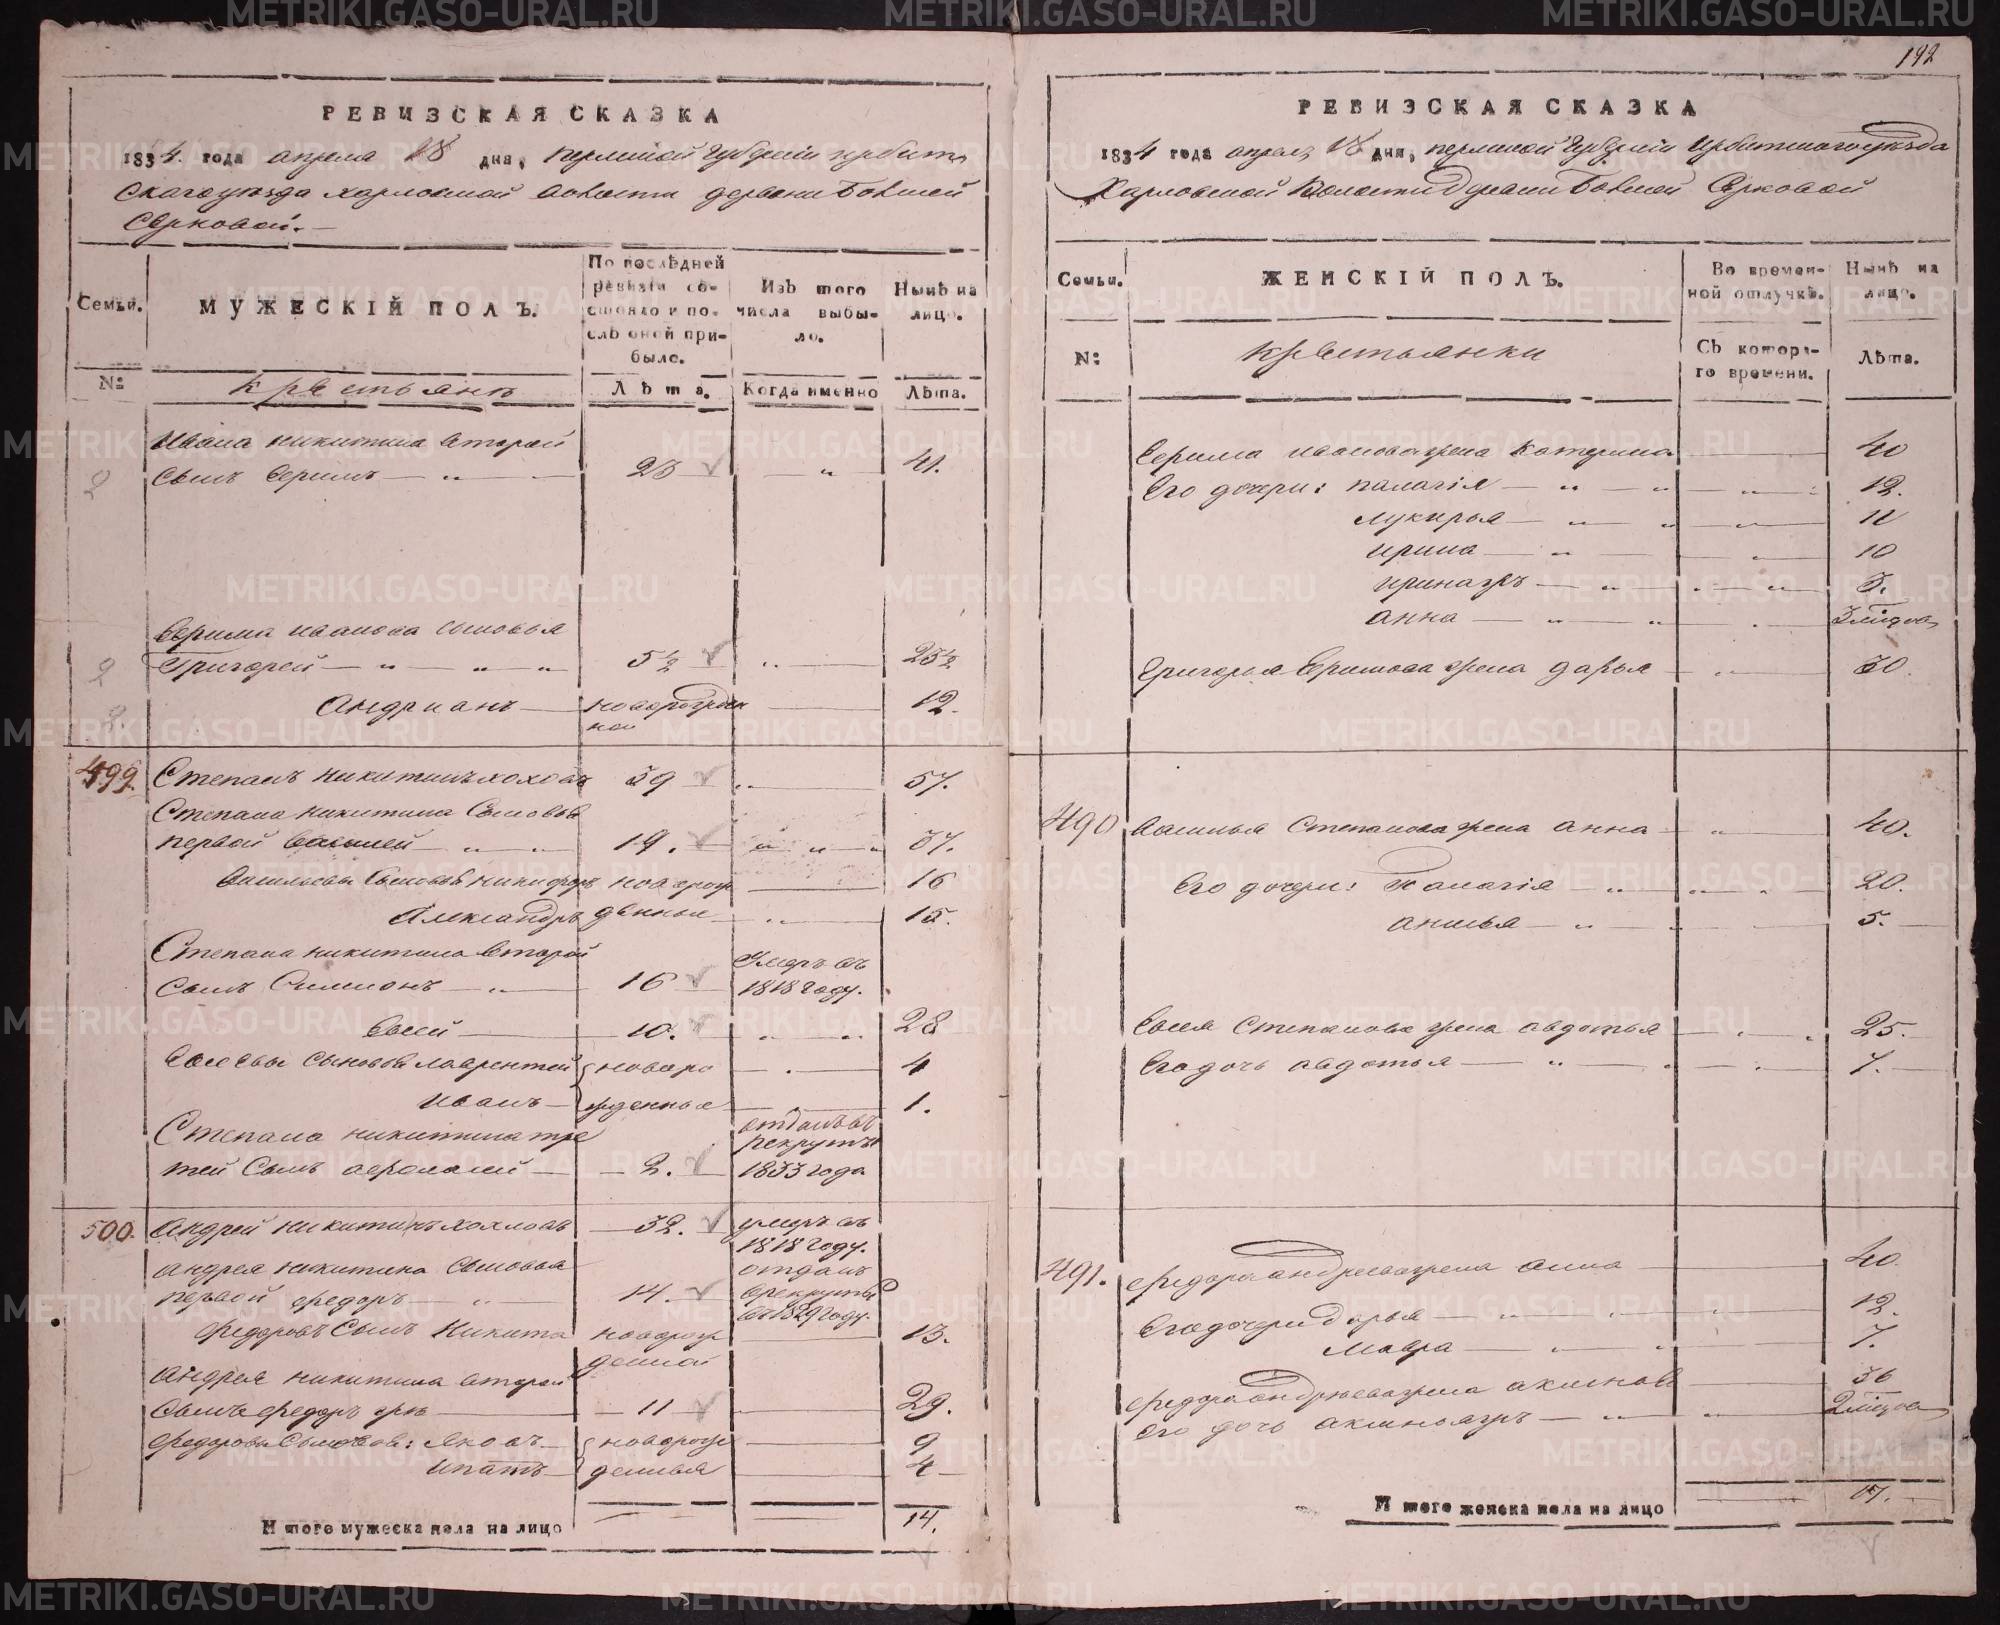 192
РЕВИЗСКАЯ СКАЗКА
1834. года апреля 18 дня, пермской губернии ирбит
скаго уезда харловской волости деревни Большей
Серковой.
Семьи.
МУЖЕСКІЙ ПОЛЪ.
По послѣдней ревизіи состояло и послѣ оной прибыло.
Изъ того числа выбыло.
Нынѣ на лицо.
№:
крестьянъ
Лѣта.
Когда именно
Лѣта.
Ивана никитина второй
сынъ Ефимъ 23 41.
Ефима иванова сыновья
Григорей 5½ 23½
Андрианъ новорожден
ной 12.
499. Степанъ никитинъ хохловъ 39 57.
Степана никитина Сыновья
первой василей 19. 37.
васильевы Сыновья никифоръ новорож 16
Александръ денные 15.
Степана никитина второй
сынъ Симионъ 16 Умеръ въ 1818 году.
Евсей 10. 28
Евсеевы сыновья лаврентей новоро 4
Иванъ жденные 1.
Степана никитина тре
тей Сынъ 2. отданъ въ рекруты 1833 года
500. Андрей никитинъ хохловъ 32. умеръ въ 1818 году.
андрея никитина сыновья
первой федоръ 14. отданъ в рекруты въ 1829 году.
федоровъ Сынъ Никита новорож 13.
денной
андрея никитина второй
Сынъ федоръ же 11 29.
федоровы Сыновья: Яковъ новорож 9
ипатъ денныя 4
И того мужеска пола на лицо 14.
РЕВИЗСКАЯ СКАЗКА
1834 года апреля 18 дня, пермской Губерніи Ирбитскаго уезда
Харловской Волости Деревни Большой Серковой
Семьи.
ЖЕНСКІЙ ПОЛЪ.
Во временной отлучкѣ.
Нынѣ на лицо.
№:
крестьянки
Съ котораго времени.
Лѣта.
Ефима иванова жена Катерина 40
Его дочери: палагія 12.
лукирья 11
ирина 10
3.
анна 3 месяца
Григорья Ефимова жена дарья 30.
490 василья Степанова жена анна 40.
Его дочери: Палагія 20.
анисья 5.
Евсея Степанова жена авдотья 25.
Его дочь авдотья 7.
491. федора андреева жена анна 40.
Его дочери дарья 12.
Мавра 7.
федора андреева жена 36
его дочь 2 месяца
И того женска пола на лицо 17.
METRIKI.GASO-URAL.RU